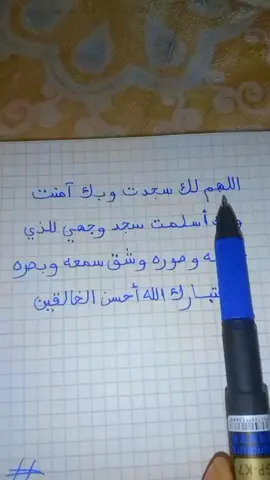 اللهم لك سجدت وبك آمنت
أسلمت سجد وجهي للذي
وصوره وشق سمعه وبصره
تبارك الله أحسن الخالقين
#